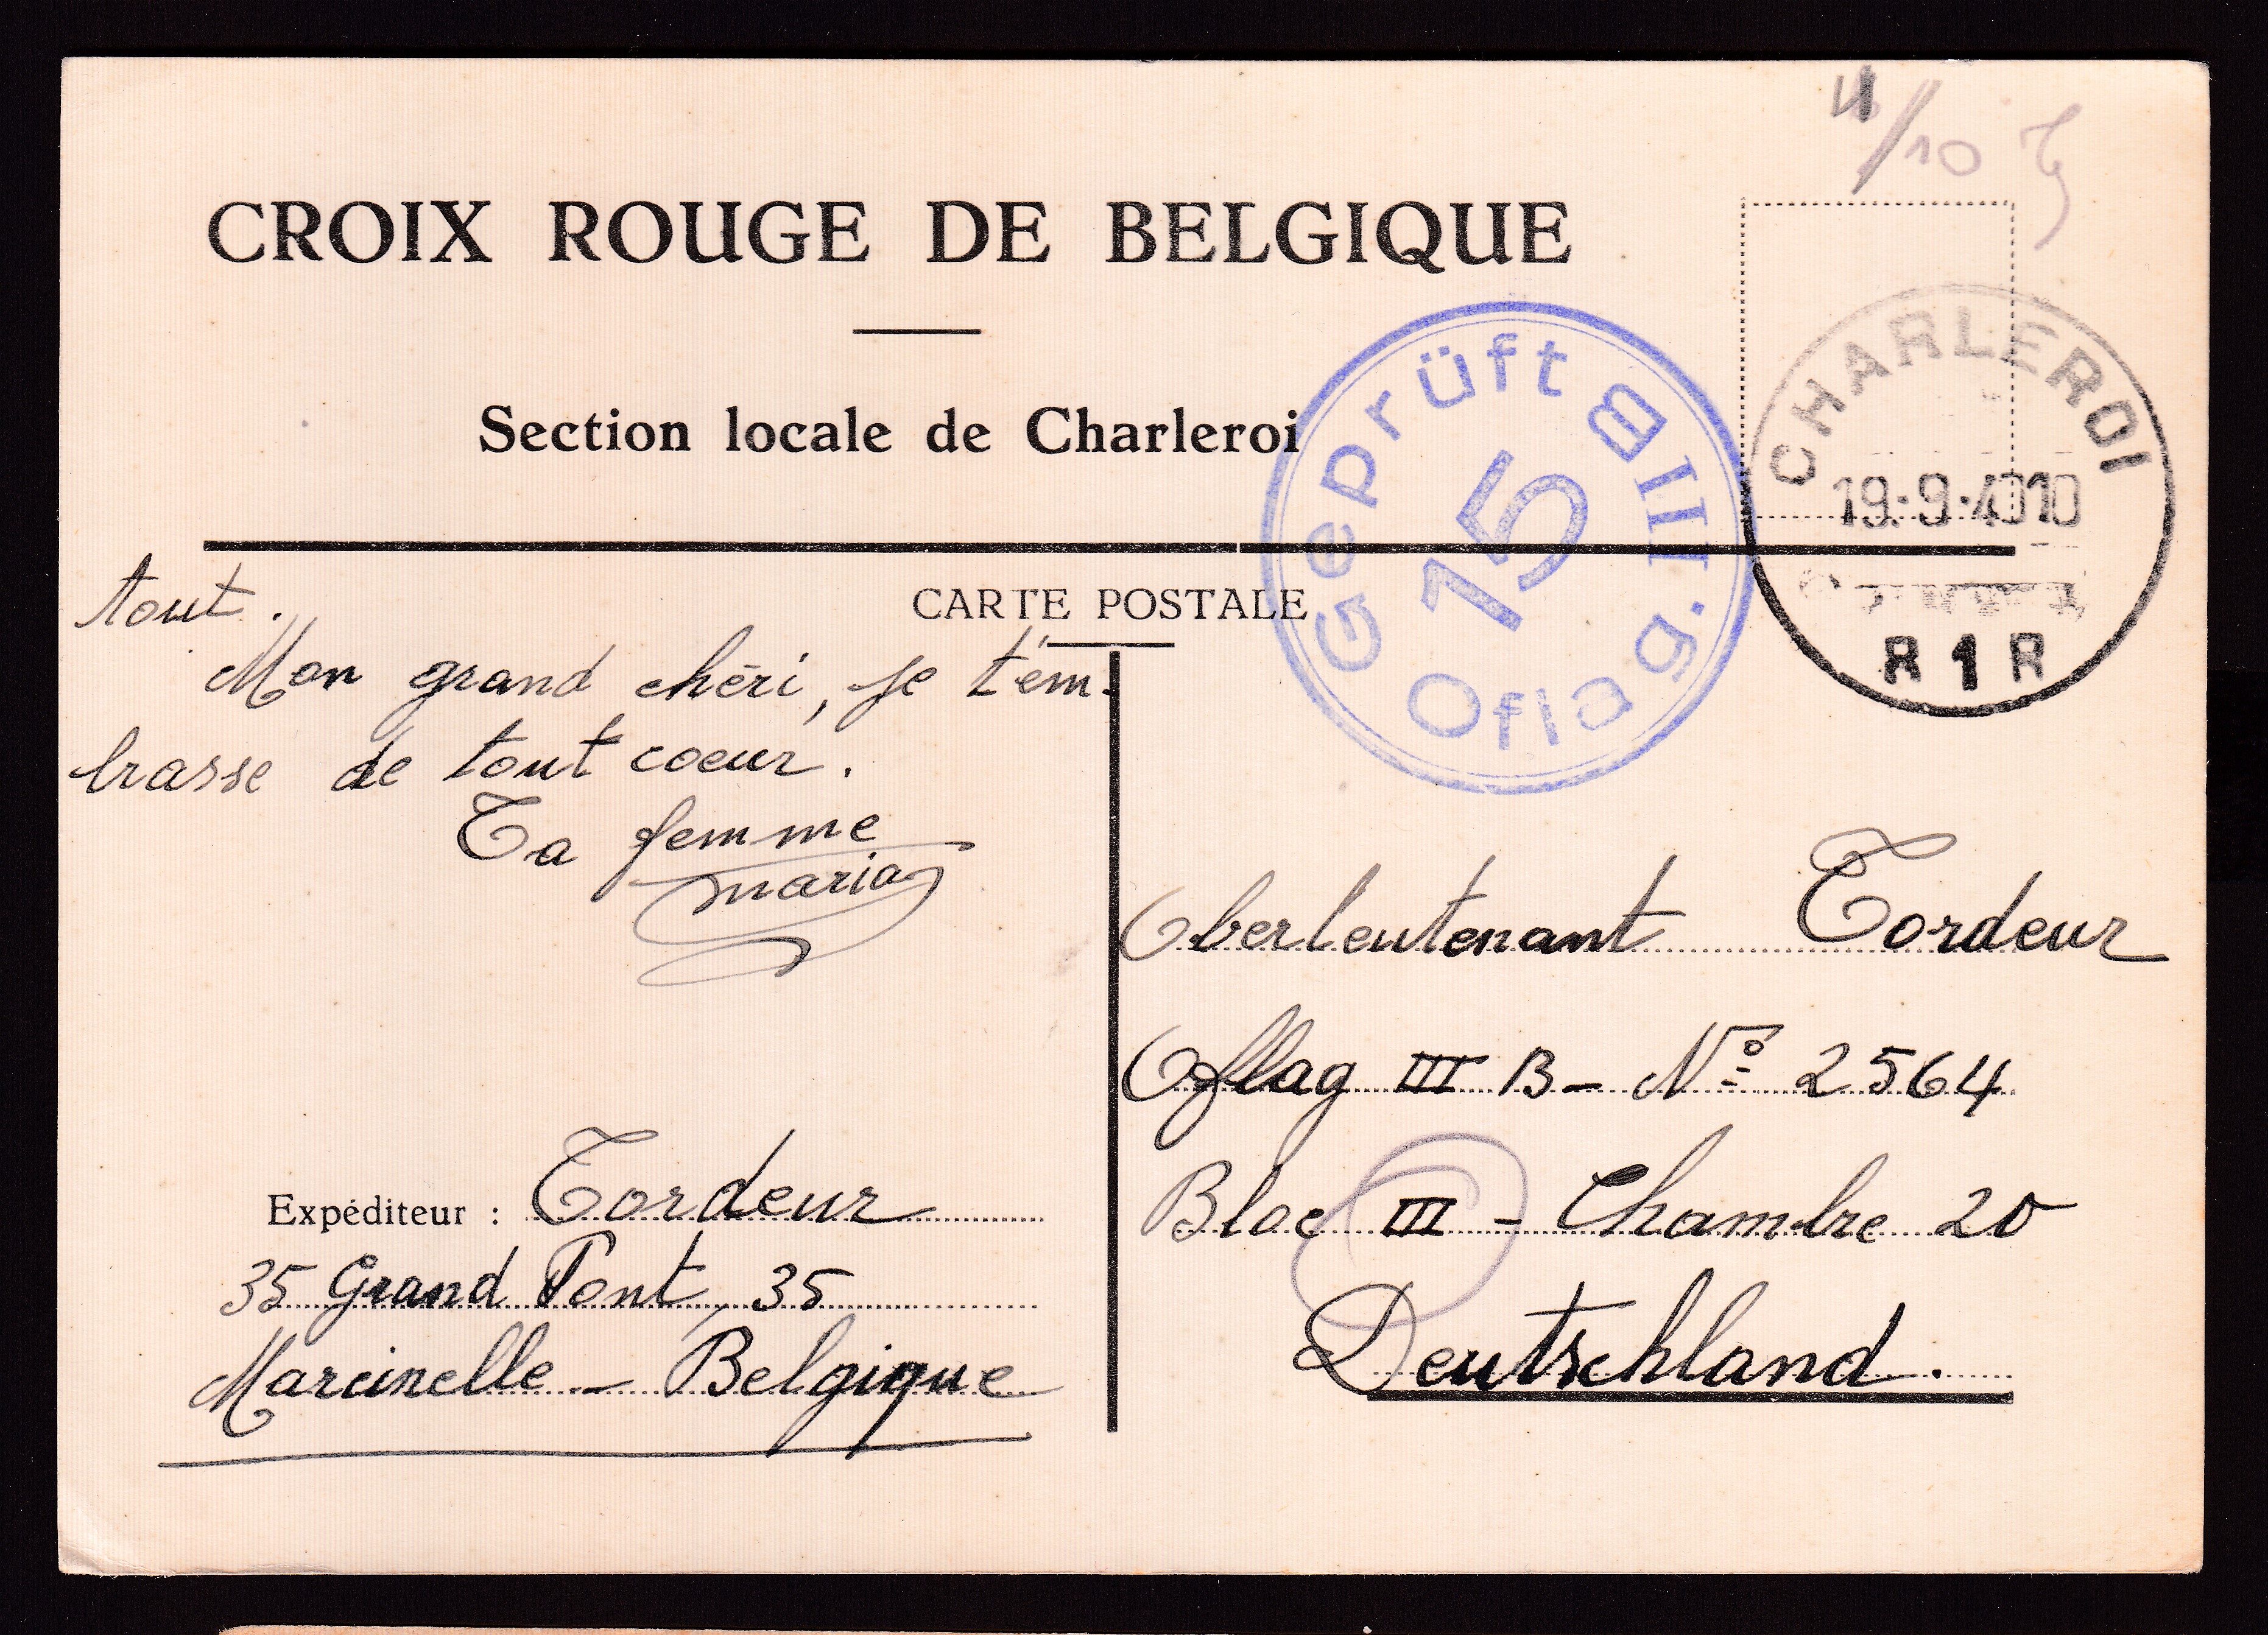 4/10
CROIX ROUGE DE BELGIQUE
Section locale de Charleroi
CHARLEROI
19.9.4010
R 1 R
Geprüft
15
Oflag. III B
CARTE POSTALE
tout.
Mon grand chéri, je t'em-
brasse de tout coeur.
Ta femme
Maria
Oberleutenant Tordeur
Oflag III B - No 2564
Bloc III - Chambre 20
Deutschland.
Expéditeur : Tordeur
35 Grand Pont, 35
Marcinelle - Belgique